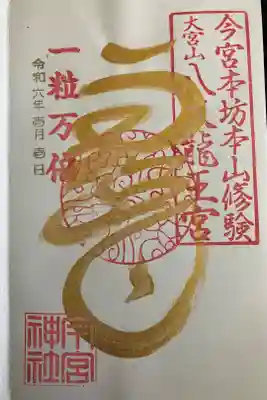 今宮本坊本山修験
大宮山八大龍王宮
一粒万倍
令和六年壱月壱日
今宮神社